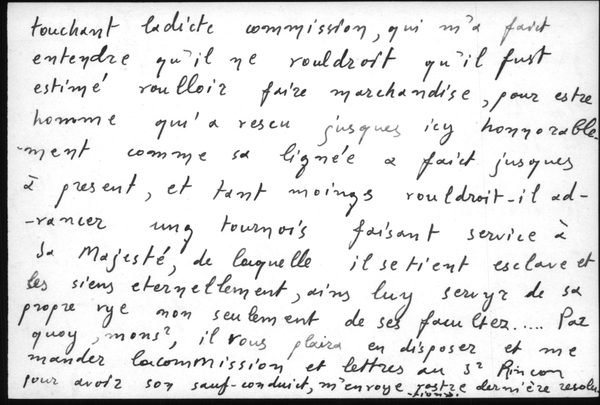 touchant ladicte commission, qui m'a faict
entendre qu'il ne vouldroit qu'il fust
estimé voulloir faire marchandise, pour estre
homme qui a vescu jusques icy honnorable-
-ment comme sa lignée a faict jusques
à present, et tant moings vouldroit-il ad-
-vancer ung tournois faisant service à
Sa Majesté, de laquelle il se tient esclave et
les siens eternellement, ains luy servyr de sa
propre vye non seulement de ses facultez.... Par
quoy, monsr, il vous plaira en disposer et me
mander la commission et lettres au sr Rincon
pour avoir son sauf-conduict, m'envoye vostre dernière resolu-
-tions.